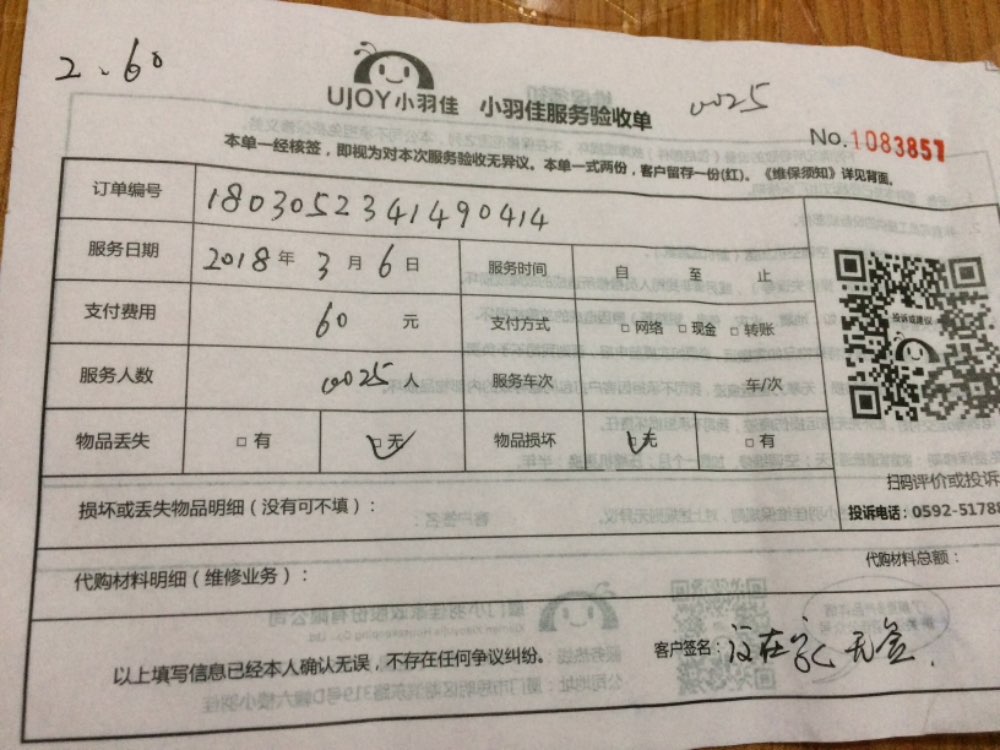 2.60
UJOY小羽佳 小羽佳服务验收单
0025
No.1083857
本单一经核签，即视为对本次服务验收无异议。本单一式两份，客户留存一份(红)。《维保须知》详见背面。
订单编号 1803052341490414
服务日期 2018年3月6日 服务时间 自 至 止
支付费用 60元 支付方式 □网络 □现金 □转账
投诉或建议
服务人数 0025人 服务车次 车/次
物品丢失 □有 ☑无 物品损坏 ☑无 □有
扫码评价或投诉
损坏或丢失物品明细（没有可不填）：
投诉电话：0592-51788
代购材料明细（维修业务）：
代购材料总额：
以上填写信息已经本人确认无误，不存在任何争议纠纷。
客户签名：没在家 无签.